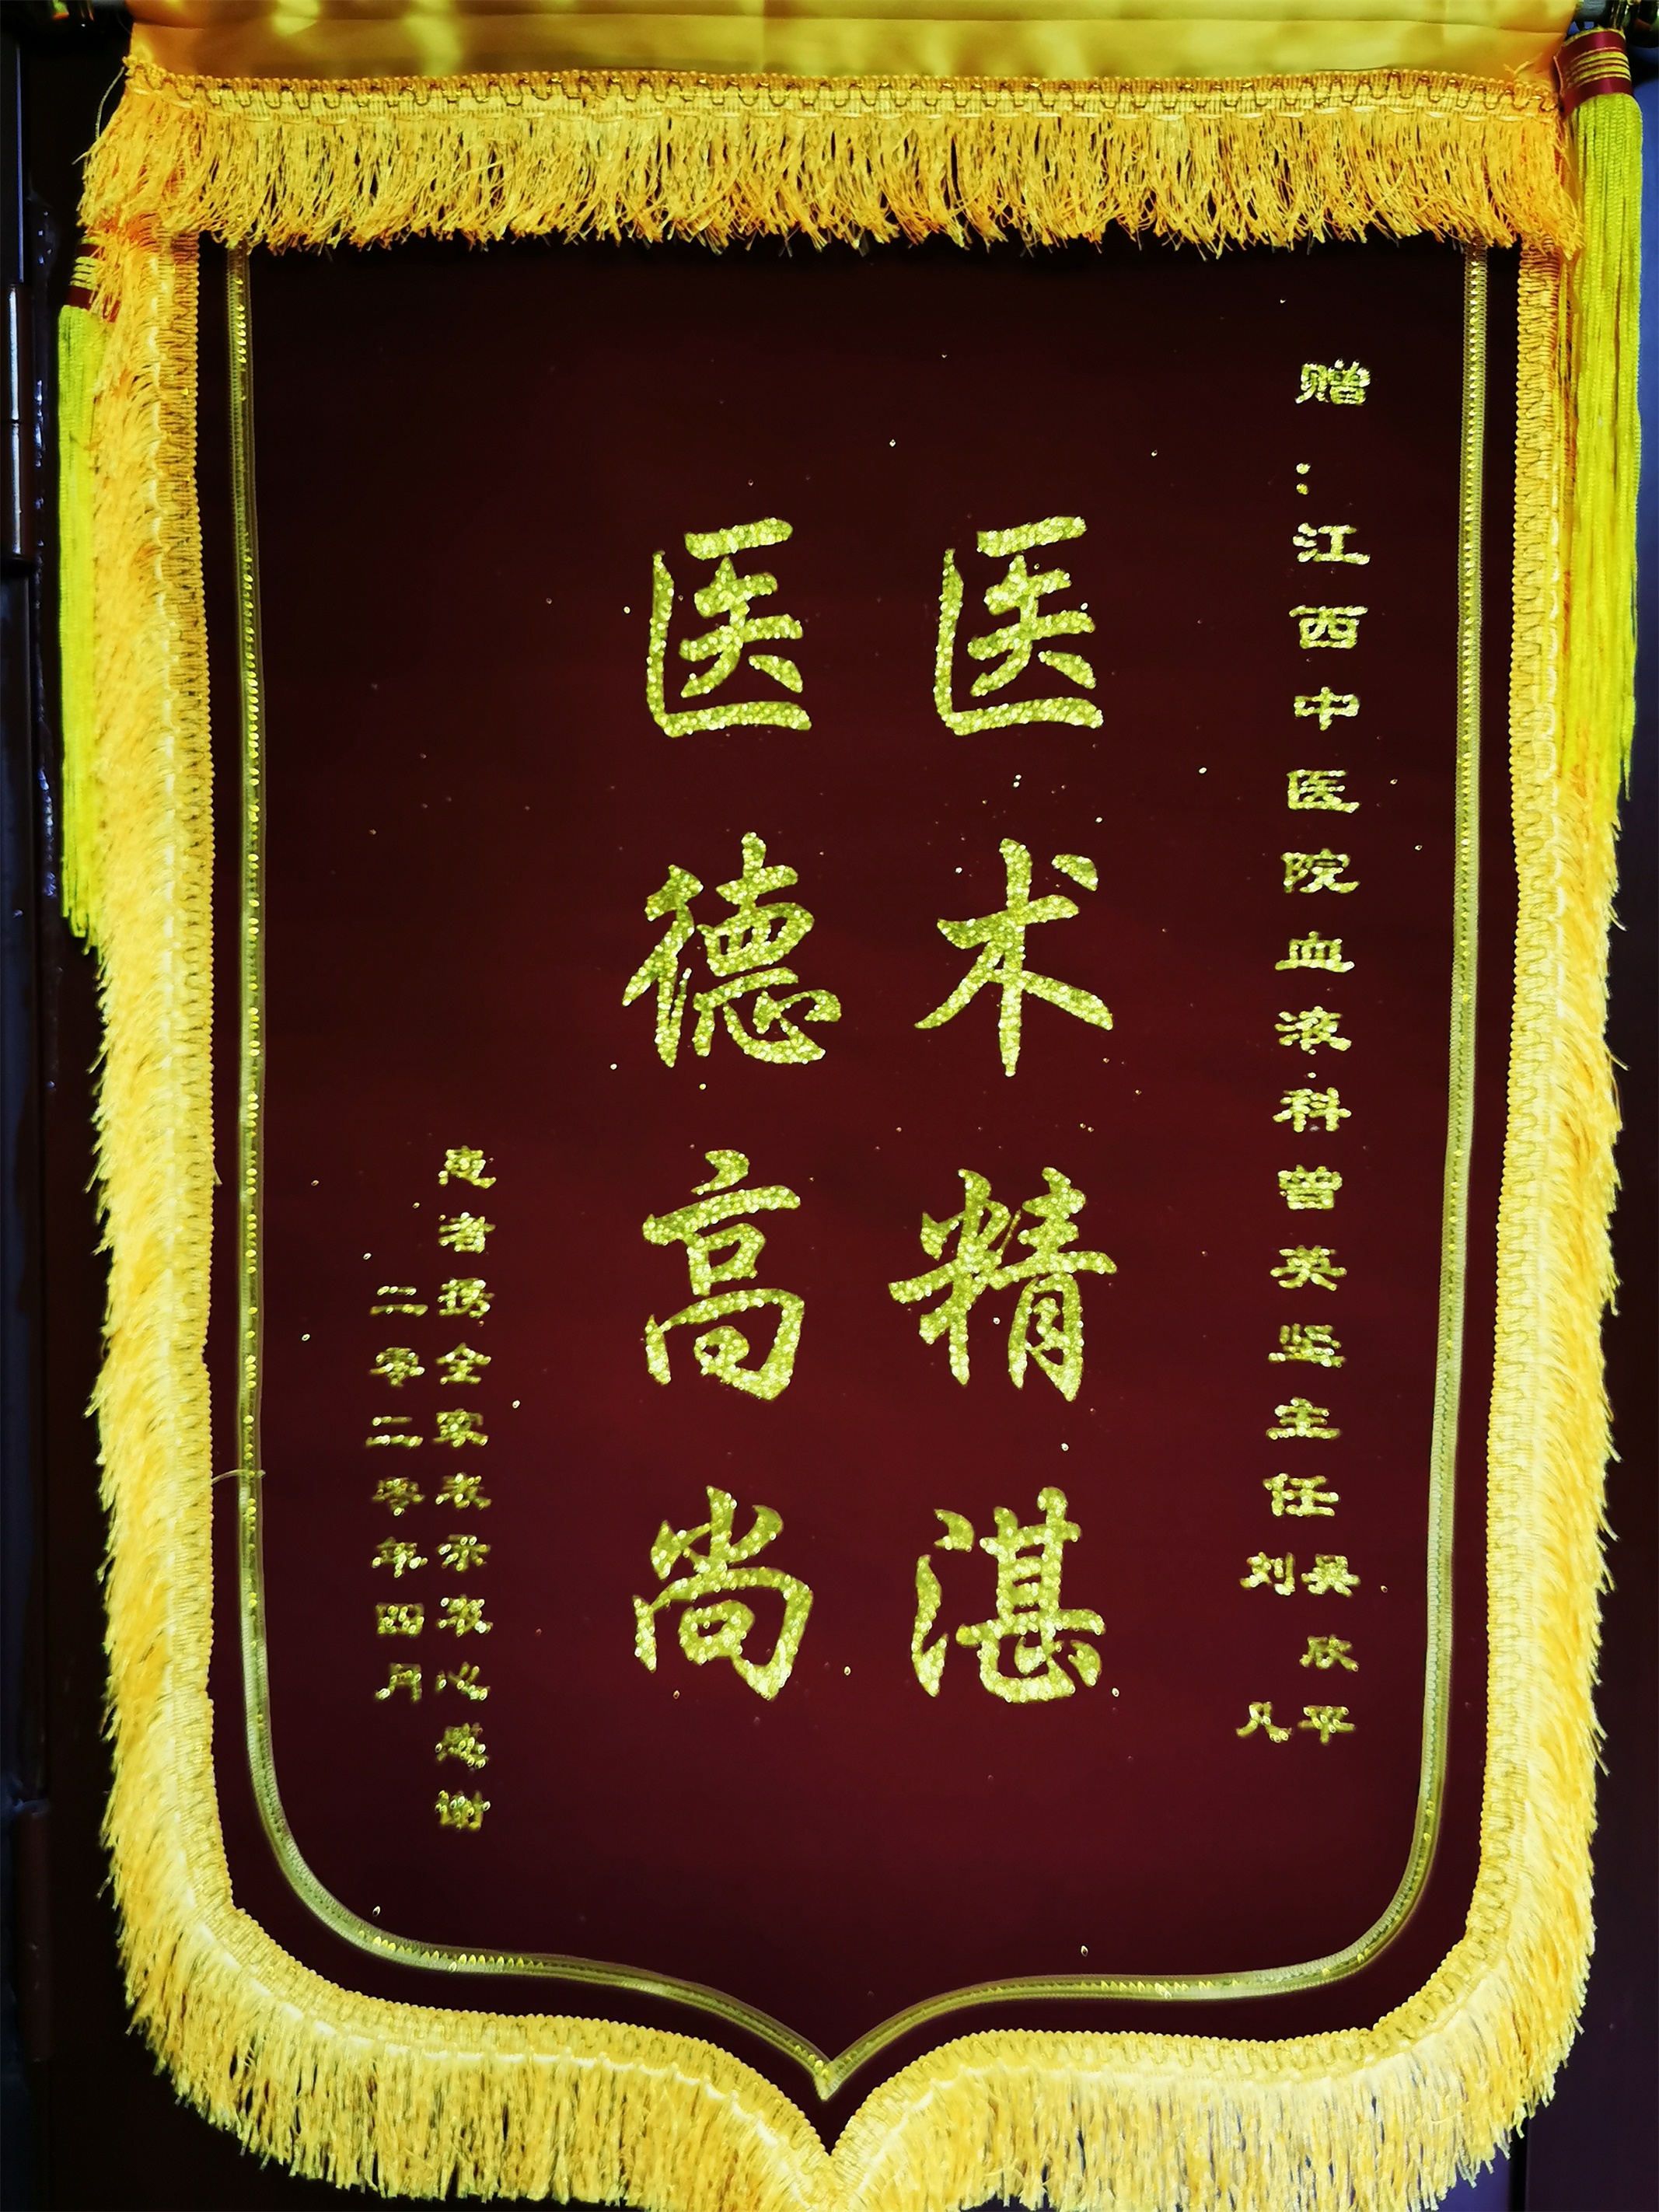 赠：江西中医院血液科曾英坚主任吴欣平
刘凡
医术精湛
医德高尚
患者携全家表示衷心感谢
二零二零年四月